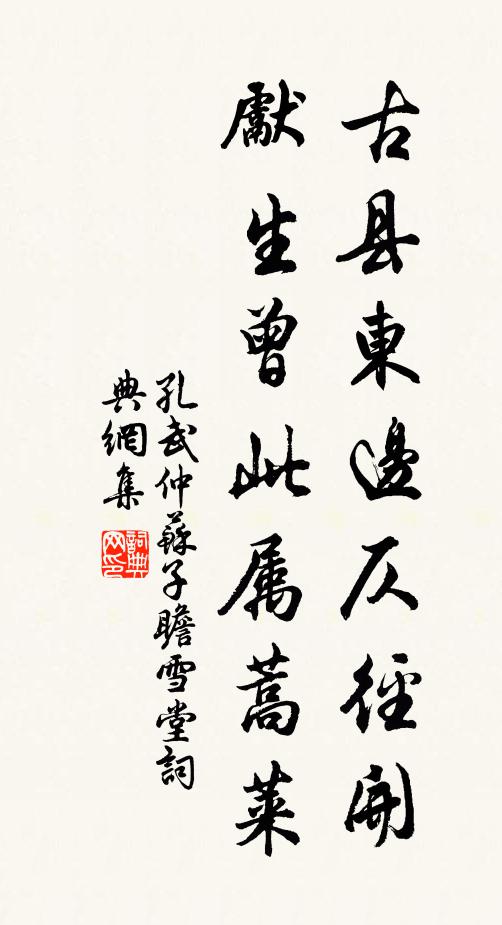 古县東邊仄徑開
獻生曾此属蒿莱
孔武仲蘇子瞻雪堂詞
典網集
詞典
网印